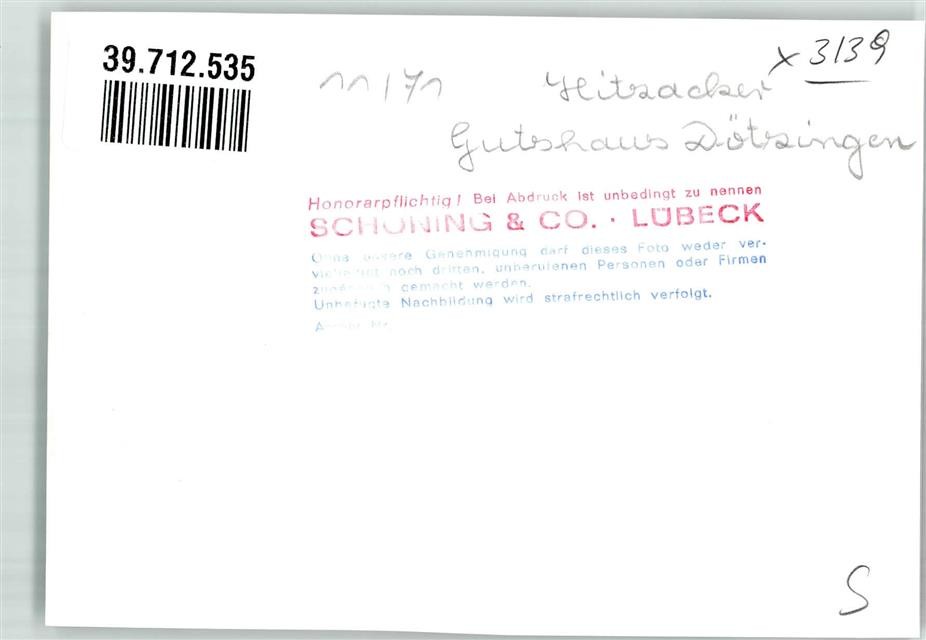 39.712.535
11/71
Hitzacker
x 3139
Gutshaus Dötzingen
Honorarpflichtig! Bei Abdruck ist unbedingt zu nennen
SCHÖNING & CO. · LÜBECK
Ohne unsere Genehmigung darf dieses Foto weder ver-
vielfältigt noch dritten, unberufenen Personen oder Firmen
zugänglich gemacht werden.
Unbefugte Nachbildung wird strafrechtlich verfolgt.
S